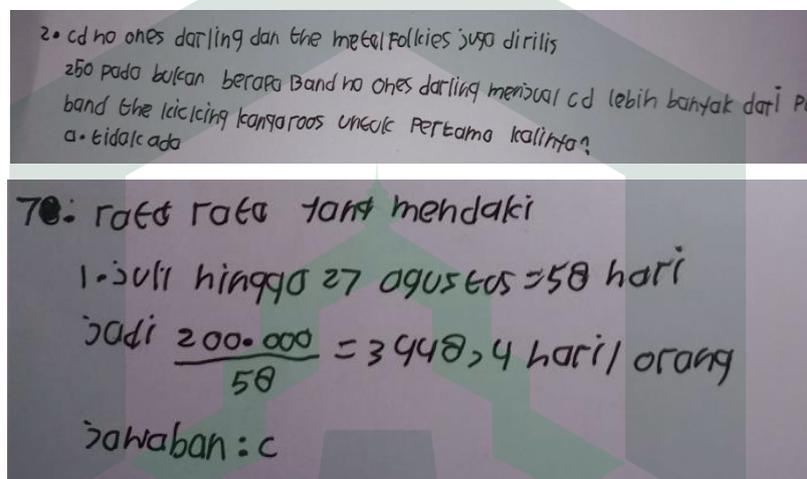 2. cd no ones darling dan the metalfolkies juga dirilis
250 pada bulan berapa Band no ones darling menjual cd lebih banyak dari P
band the kicking kangaroos untuk Pertama kalinya?
a. tidak ada
78: rata rata yang mendaki
1. juli hingga 27 agustus = 58 hari
jadi 200.000 / 58 = 3448,4 hari/orang
jawaban: c